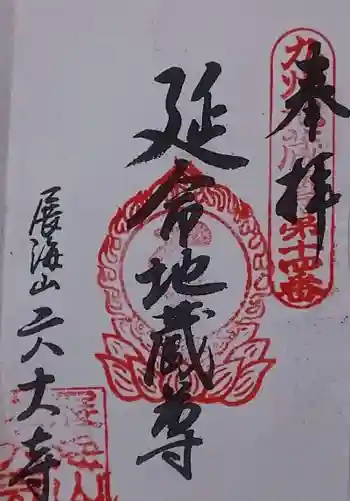 奉拝
第十四番
延命地蔵尊
展海山 六大寺